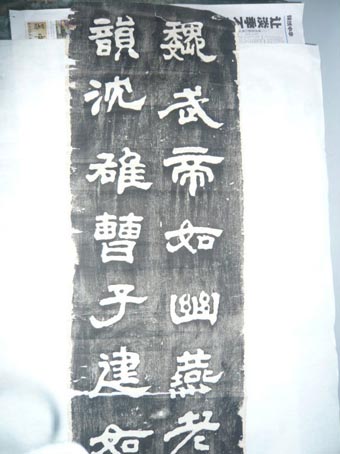 魏武帝如幽燕老
韻沈雄曹子建如